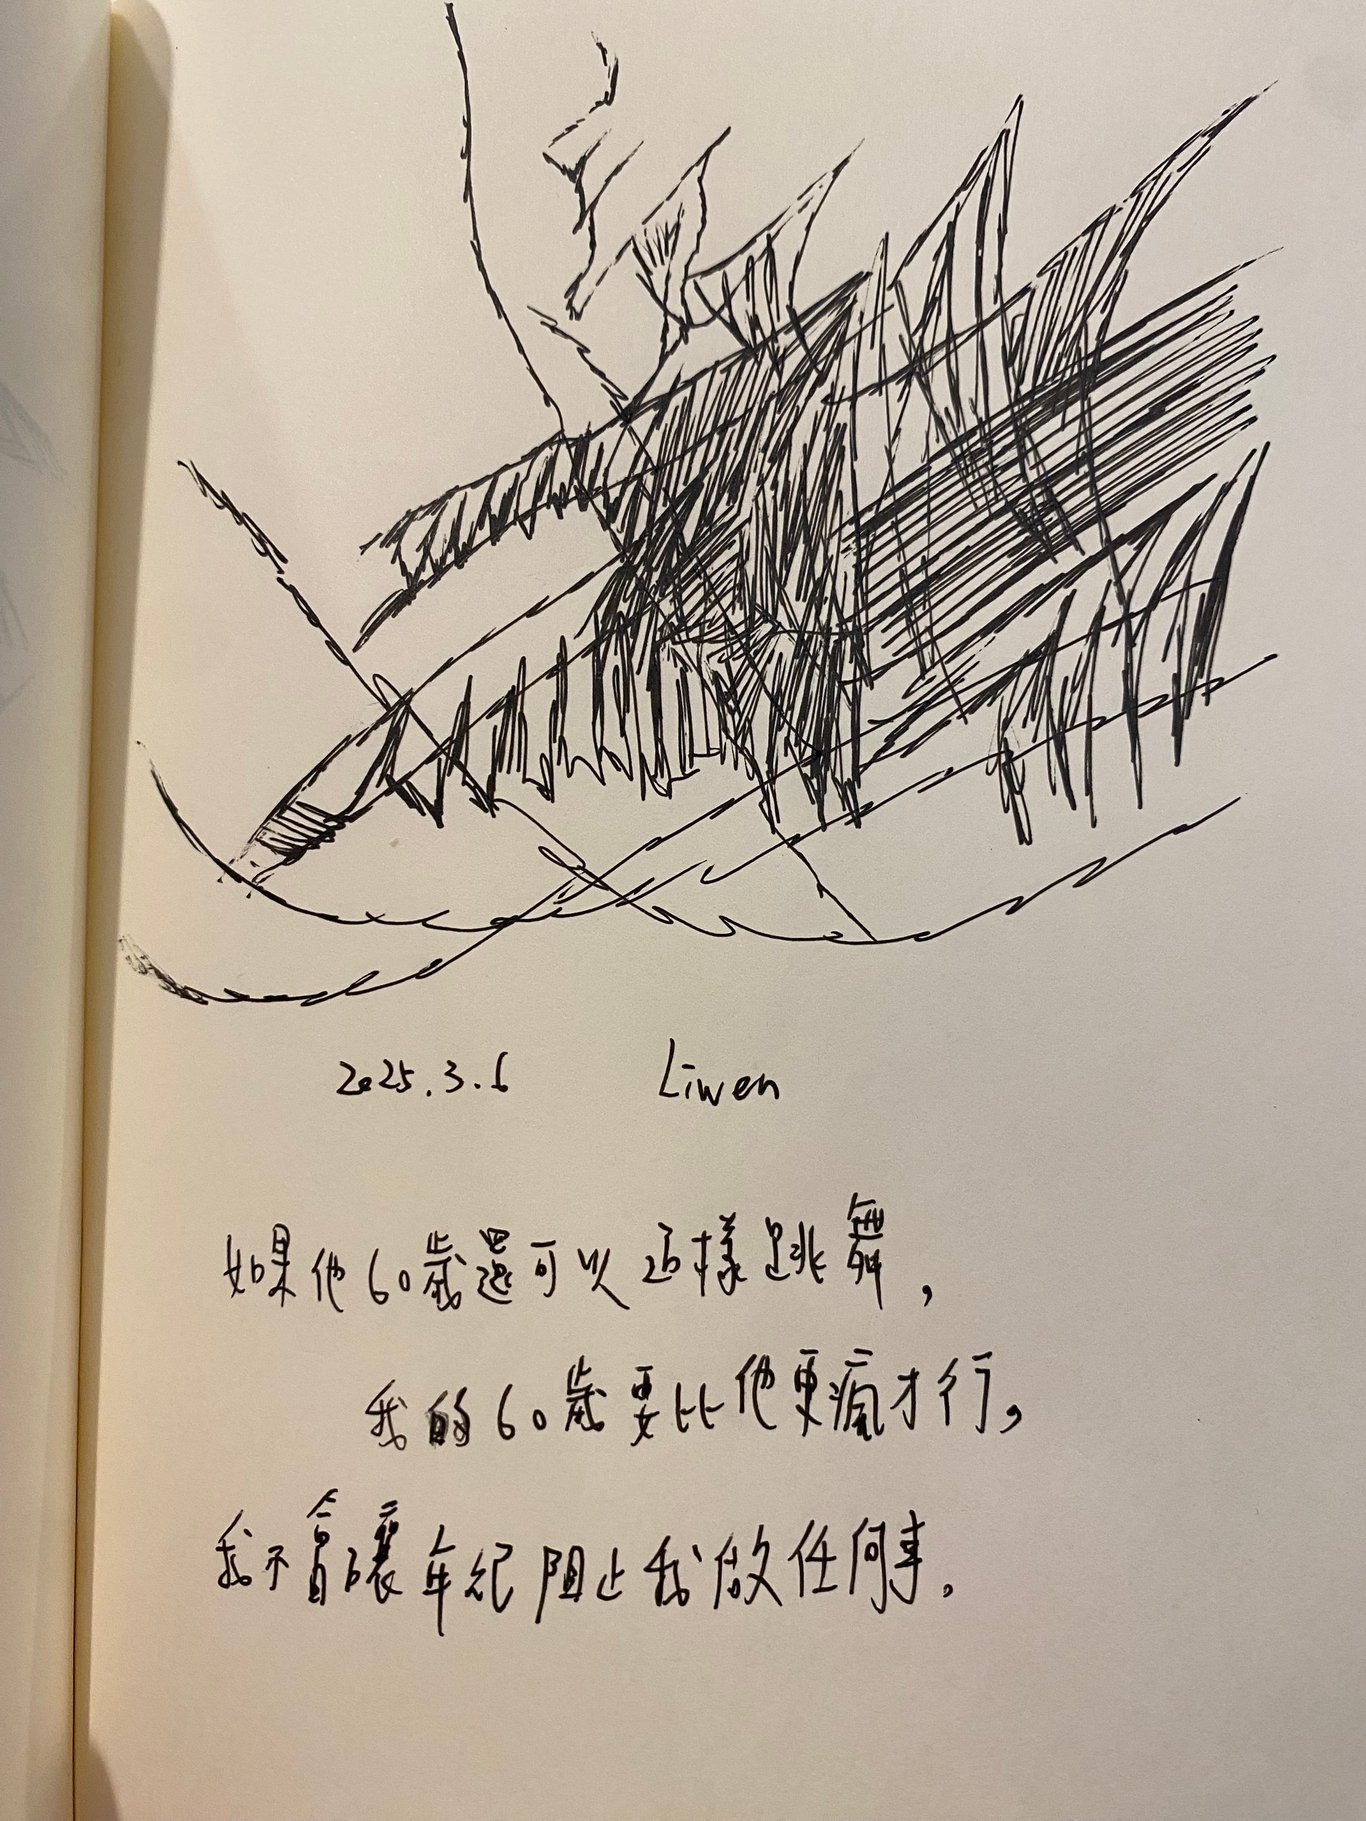 2025.3.6 Liwen
如果他60歲還可以這樣跳舞，
我的60歲要比他更瘋才行，
我不會讓年紀阻止我做任何事。